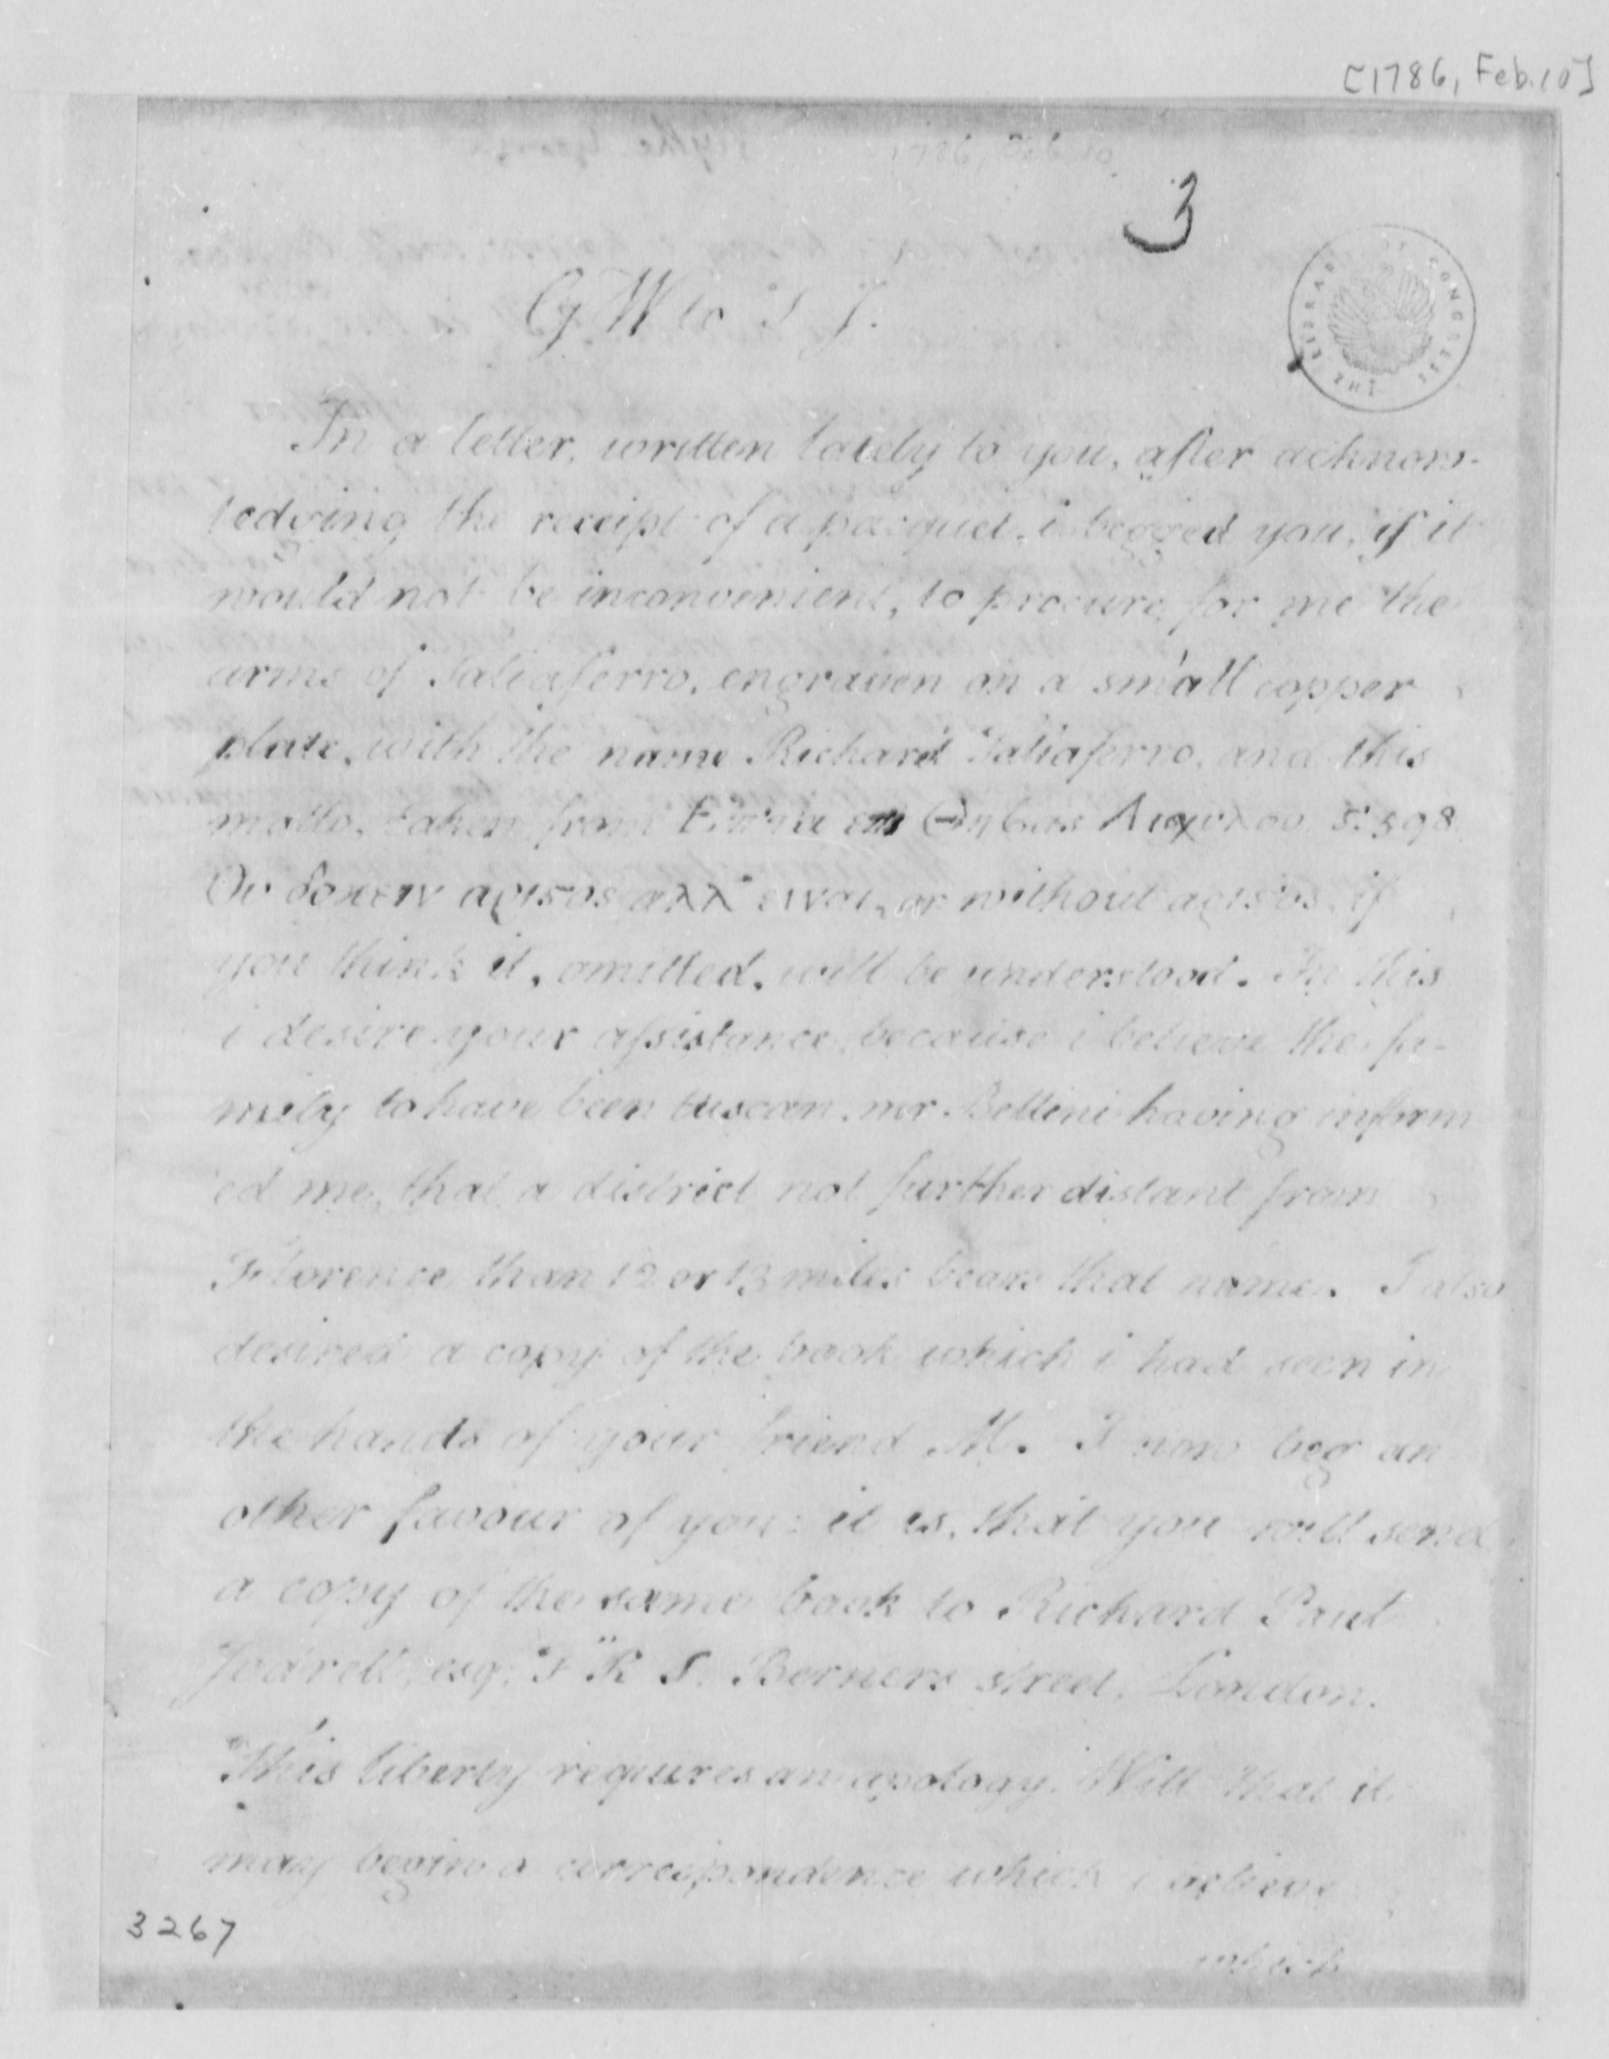 [1786, Feb. 10]
3
THE LIBRARY OF CONGRESS
G W to T J.
In a letter, written lately to you, after acknow-
ledging the receipt of a pacquet, i begged you, if it
would not be inconvenient, to procure for me the
arms of Taliaferro, engraven on a small copper
plate, with the name Richard Taliaferro, and this
motto, taken from Επτα επι Θηβας Αισχυλου 5:598
Ου δοκειν αριστος αλλ' ειναι, or without αριστος, if
you think it, omitted, will be understood. In this
i desire your assistance, because i believe the fa-
mily to have been tuscan, mr Bellini having inform
ed me, that a district not further distant from
Florence than 12 or 13 miles bears that name. I also
desired a copy of the book which i had seen in
the hands of your friend M. I now beg an
other favour of you: it is, that you will send
a copy of the same book to Richard Paul
Jodrell, esq, F R S. Berners street, London.
This liberty requires an apology. Will that it
may begin a correspondence which i believe
which
3267